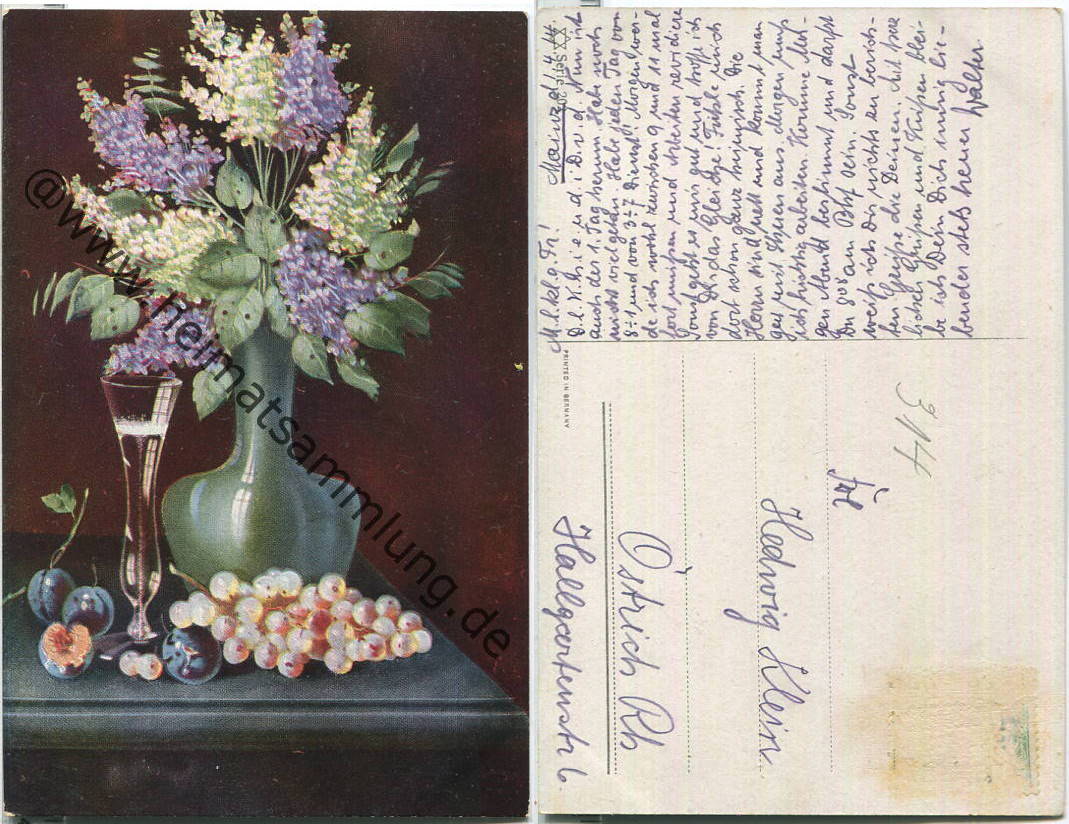 @www.heimatsammlung.de
Mainz, d. 1.4.44.
M. l. kl. Fr!
auch der 1. Tag herum. Hab noch
nicht viel getan. Hab jeden Tag von
8-1 und von 3-7 Dienst. Morgen wer-
de ich wohl zwischen 9 und 11 mal
fort müssen und Arbeiten revidieren
Sonst geht es mir gut und hoffe ich
von Dir das Gleiche! Fühle mich
doch schon ganz heimisch. Die
gen mit Essen aus. Morgen muß
ich tüchtig arbeiten. Komme Mor-
gen Abend bestimmt und darfst
Du 8 08 am Bhf sein. Sonst
weiß ich Dir nichts zu berich-
ten. Grüße die Deinen. Mit herz-
lichen Grüßen und Küssen blei-
be ich Dein Dich innig lie-
bender stets treuer Walter.
PRINTED IN GERMANY
314
Frl
Hedwig Klein
Östrich Rh
Hallgartenstr 6